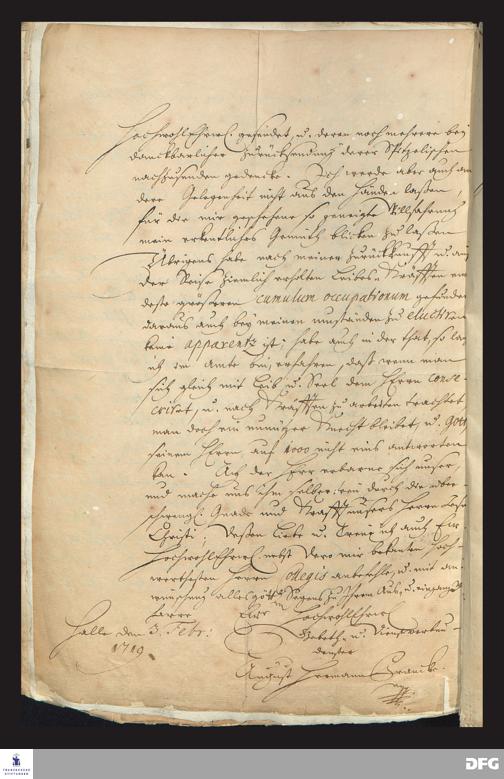 HochwohlEhrw. gesendet, u. deren noch mehrere bey
danckbarlicher Zurücksendung derer Spitzelischen
nachzusenden gedencke. Ich werde aber auch an
dere Gelegenheit nicht aus den Händen laßen,
für die mir geschehene so geneigte Willfahrung
mein erkentliches Gemüth blicken zu laßen
Übrigens habe nach meiner Zurückkunfft u. auf
der Reise ziemlich erholten Leibes-Kräfften ein
desto größeren cumulum occupationum gefunden
daraus auch bey meinen umständen zu eluctiren
keine apparentz ist: habe auch in der that, so lang
ich im Amte bin, erfahren, daß wenn man
sich gleich mit Leib u. Seel dem Herrn conse-
criret, u. nach Kräfften zu arbeiten trachtet
man doch ein unnützer Knecht bleibet, u. Gott
seinem Herrn auf 1000 nicht eins antworten
kan. Ach der Herr erbarme sich unser,
und mache uns ihm selber treu durch die über-
schwengl. Gnade und Krafft unsers Herrn Jesu
Christi, deßen Liebe u. Treue ich auch Eur
HochwohlEhrw. nebst Dero mir bekanten Hoch-
werthesten Herrn Regis anbefehle, u. mit an-
wünschung alles göttl. Segens zu Ihrem Aus- u. eingange
harre Eur HochwohlEhrw
Halle den 3. Febr: Gebeth- u. Dienstverbun-
1719. denster
August Hermann Francke.
FRANCKESCHE STIFTUNGEN
DFG